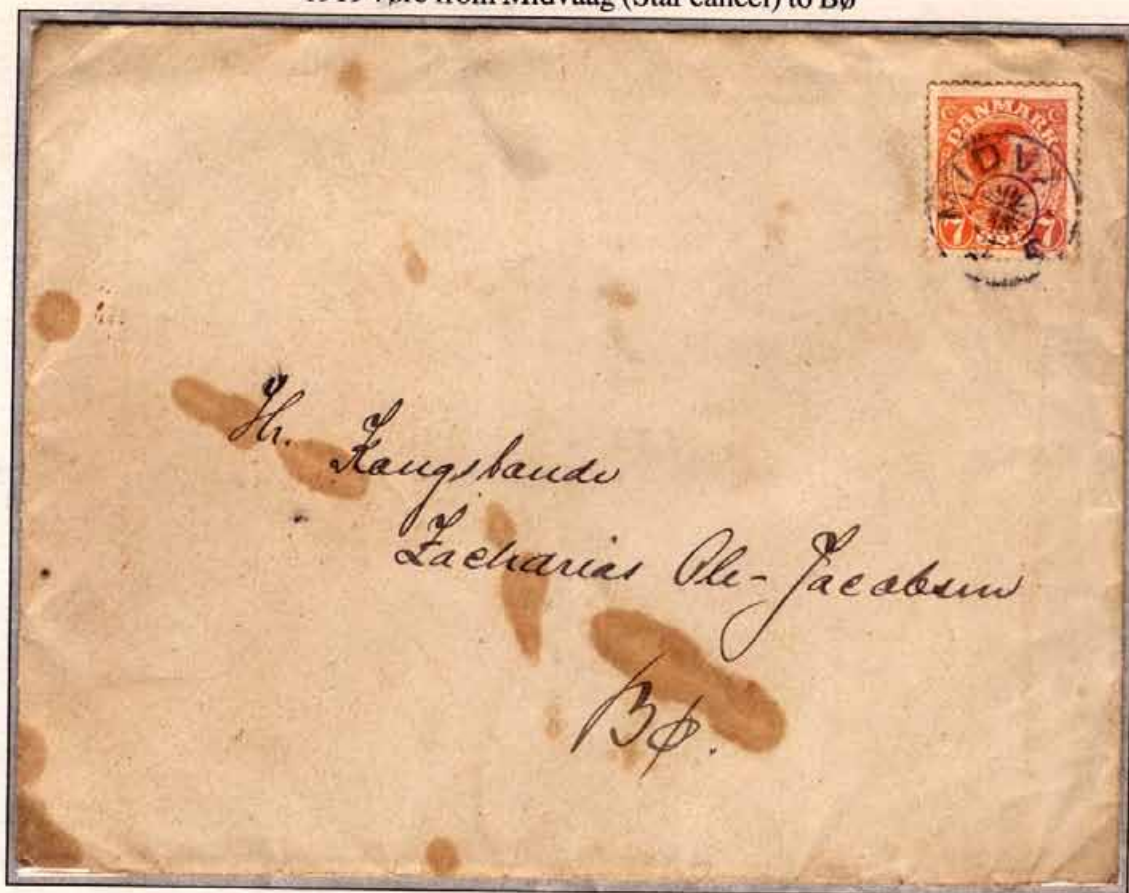 from Midvaag (Star cancel) to Bø
DANMARK
MIDV
7 7
Hr. Kongsbonde
Zacharias Ole-Jacobsen
Bø.